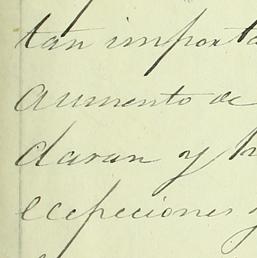 tan importa
aumento de
daran y h
ecepciones y